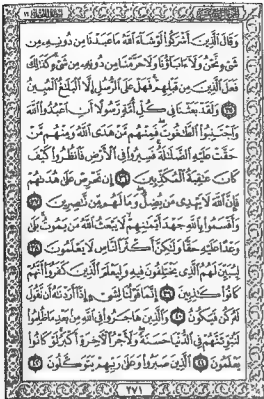 وَقَالَ ٱلَّذِينَ أَشْرَكُوا۟ لَوْ شَآءَ ٱللَّهُ مَا عَبَدْنَا مِن دُونِهِۦ مِن
شَىْءٍ نَّحْنُ وَلَآ ءَابَآؤُنَا وَلَا حَرَّمْنَا مِن دُونِهِۦ مِن شَىْءٍ كَذَٰلِكَ
فَعَلَ ٱلَّذِينَ مِن قَبْلِهِمْ فَهَلْ عَلَى ٱلرُّسُلِ إِلَّا ٱلْبَلَٰغُ ٱلْمُبِينُ
٣٥ وَلَقَدْ بَعَثْنَا فِى كُلِّ أُمَّةٍ رَّسُولًا أَنِ ٱعْبُدُوا۟ ٱللَّهَ
وَٱجْتَنِبُوا۟ ٱلطَّٰغُوتَ فَمِنْهُم مَّنْ هَدَى ٱللَّهُ وَمِنْهُم مَّنْ
حَقَّتْ عَلَيْهِ ٱلضَّلَٰلَةُ فَسِيرُوا۟ فِى ٱلْأَرْضِ فَٱنظُرُوا۟ كَيْفَ
كَانَ عَٰقِبَةُ ٱلْمُكَذِّبِينَ ٣٦ إِن تَحْرِصْ عَلَىٰ هُدَىٰهُمْ
فَإِنَّ ٱللَّهَ لَا يَهْدِى مَن يُضِلُّ وَمَا لَهُم مِّن نَّٰصِرِينَ ٣٧
وَأَقْسَمُوا۟ بِٱللَّهِ جَهْدَ أَيْمَٰنِهِمْ لَا يَبْعَثُ ٱللَّهُ مَن يَمُوتُ بَلَىٰ
وَعْدًا عَلَيْهِ حَقًّا وَلَٰكِنَّ أَكْثَرَ ٱلنَّاسِ لَا يَعْلَمُونَ ٣٨
لِيُبَيِّنَ لَهُمُ ٱلَّذِى يَخْتَلِفُونَ فِيهِ وَلِيَعْلَمَ ٱلَّذِينَ كَفَرُوٓا۟ أَنَّهُمْ
كَانُوا۟ كَٰذِبِينَ ٣٩ إِنَّمَا قَوْلُنَا لِشَىْءٍ إِذَآ أَرَدْنَٰهُ أَن نَّقُولَ
لَهُۥ كُن فَيَكُونُ ٤٠ وَٱلَّذِينَ هَاجَرُوا۟ فِى ٱللَّهِ مِنۢ بَعْدِ مَا ظُلِمُوا۟
لَنُبَوِّئَنَّهُمْ فِى ٱلدُّنْيَا حَسَنَةً وَلَأَجْرُ ٱلْءَاخِرَةِ أَكْبَرُ لَوْ كَانُوا۟
يَعْلَمُونَ ٤١ ٱلَّذِينَ صَبَرُوا۟ وَعَلَىٰ رَبِّهِمْ يَتَوَكَّلُونَ ٤٢
٢٧١